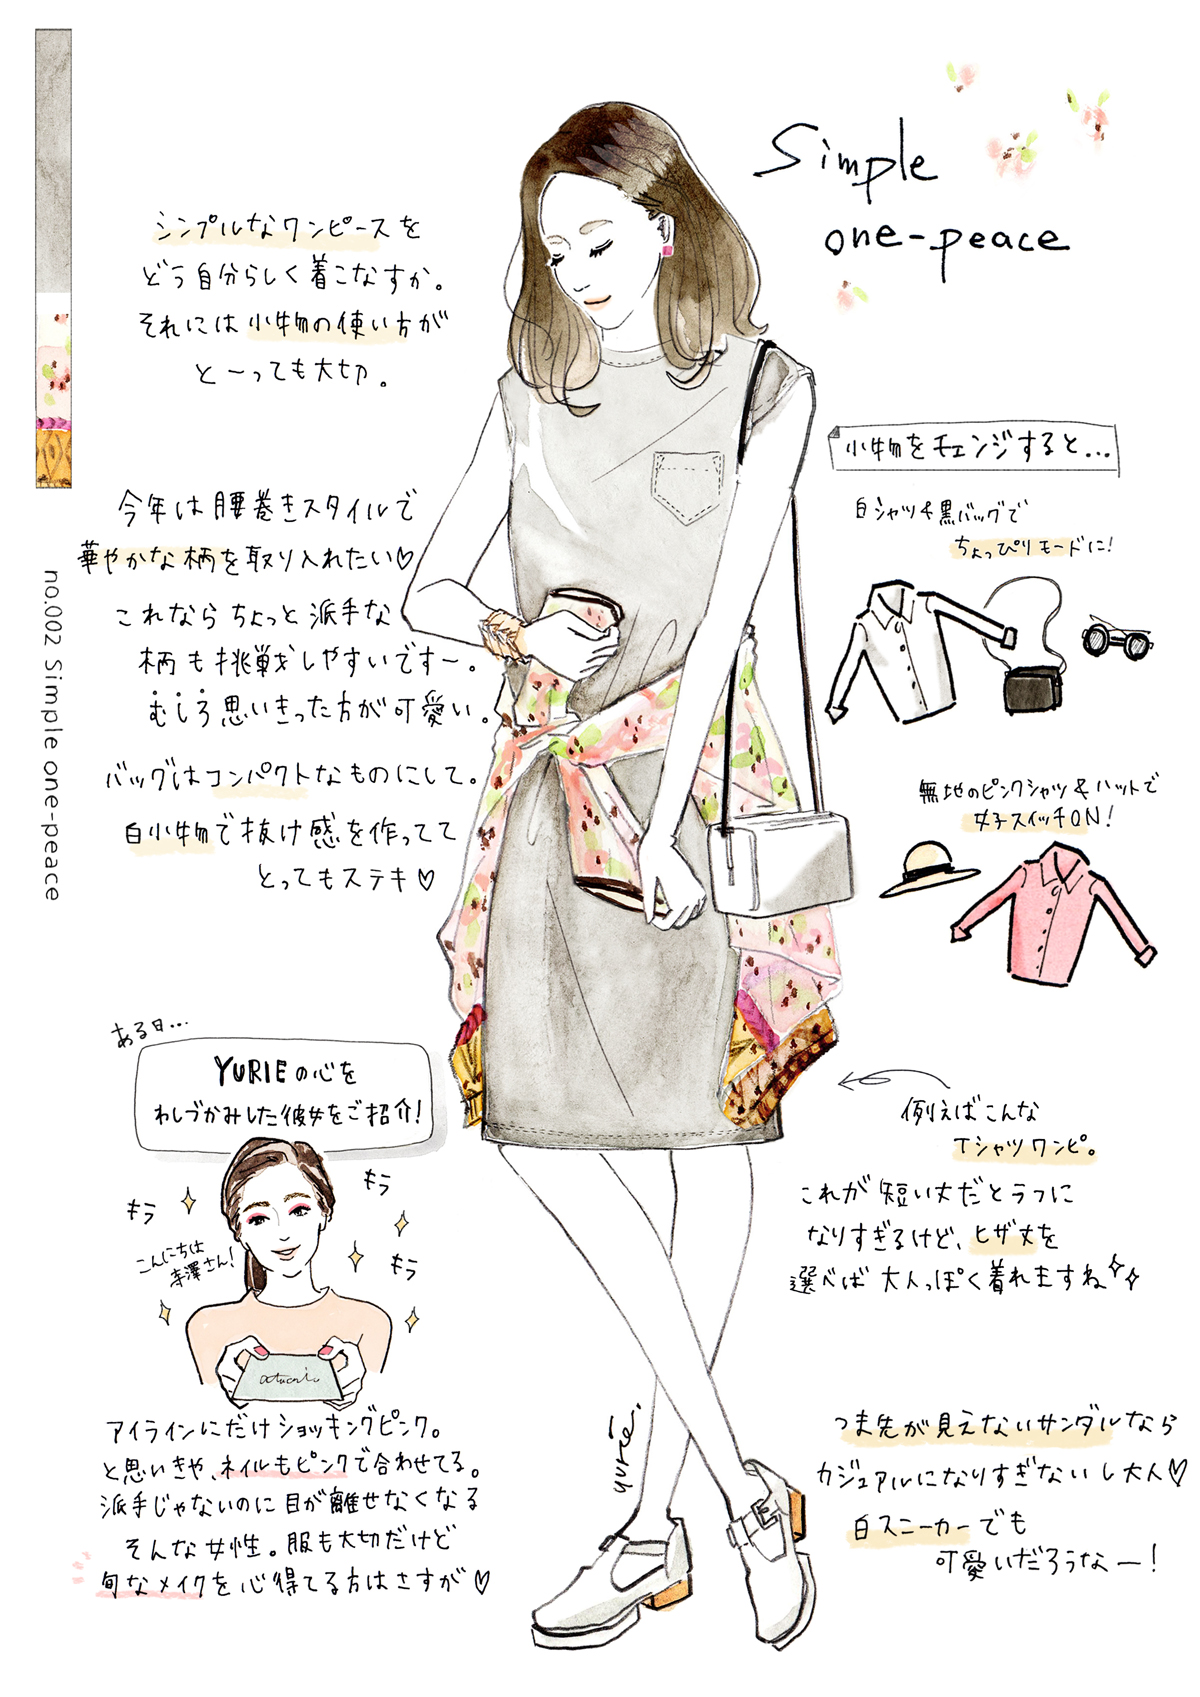 Simple
one-peace
シンプルなワンピースを
どう自分らしく着こなすか。
それには小物の使い方が
とーっても大切。
今年は腰巻きスタイルで
華やかな柄を取り入れたい♡
これならちょっと派手な
柄も挑戦しやすいですー。
むしろ思いきった方が可愛い。
バッグはコンパクトなものにして。
白小物で抜け感を作ってて
とってもステキ♡
no.002 Simple one-peace
小物をチェンジすると...
白シャツ&黒バッグで
ちょっぴりモードに!
無地のピンクシャツ&ハットで
女子スイッチON!
例えばこんな
Tシャツワンピ。
これが短い丈だとラフに
なりすぎるけど、ヒザ丈を
選べば大人っぽく着れますね
つま先が見えないサンダルなら
カジュアルになりすぎないし大人♡
白スニーカーでも
可愛いだろうなー!
ある日...
YURIEの心を
わしづかみした彼女をご紹介!
キラ
キラ
キラ
こんにちは
李澤さん!
アイラインにだけショッキングピンク。
と思いきや、ネイルもピンクで合わせてる。
派手じゃないのに目が離せなくなる
そんな女性。服も大切だけど
旬なメイクを心得てる方はさすが♡
yurie.